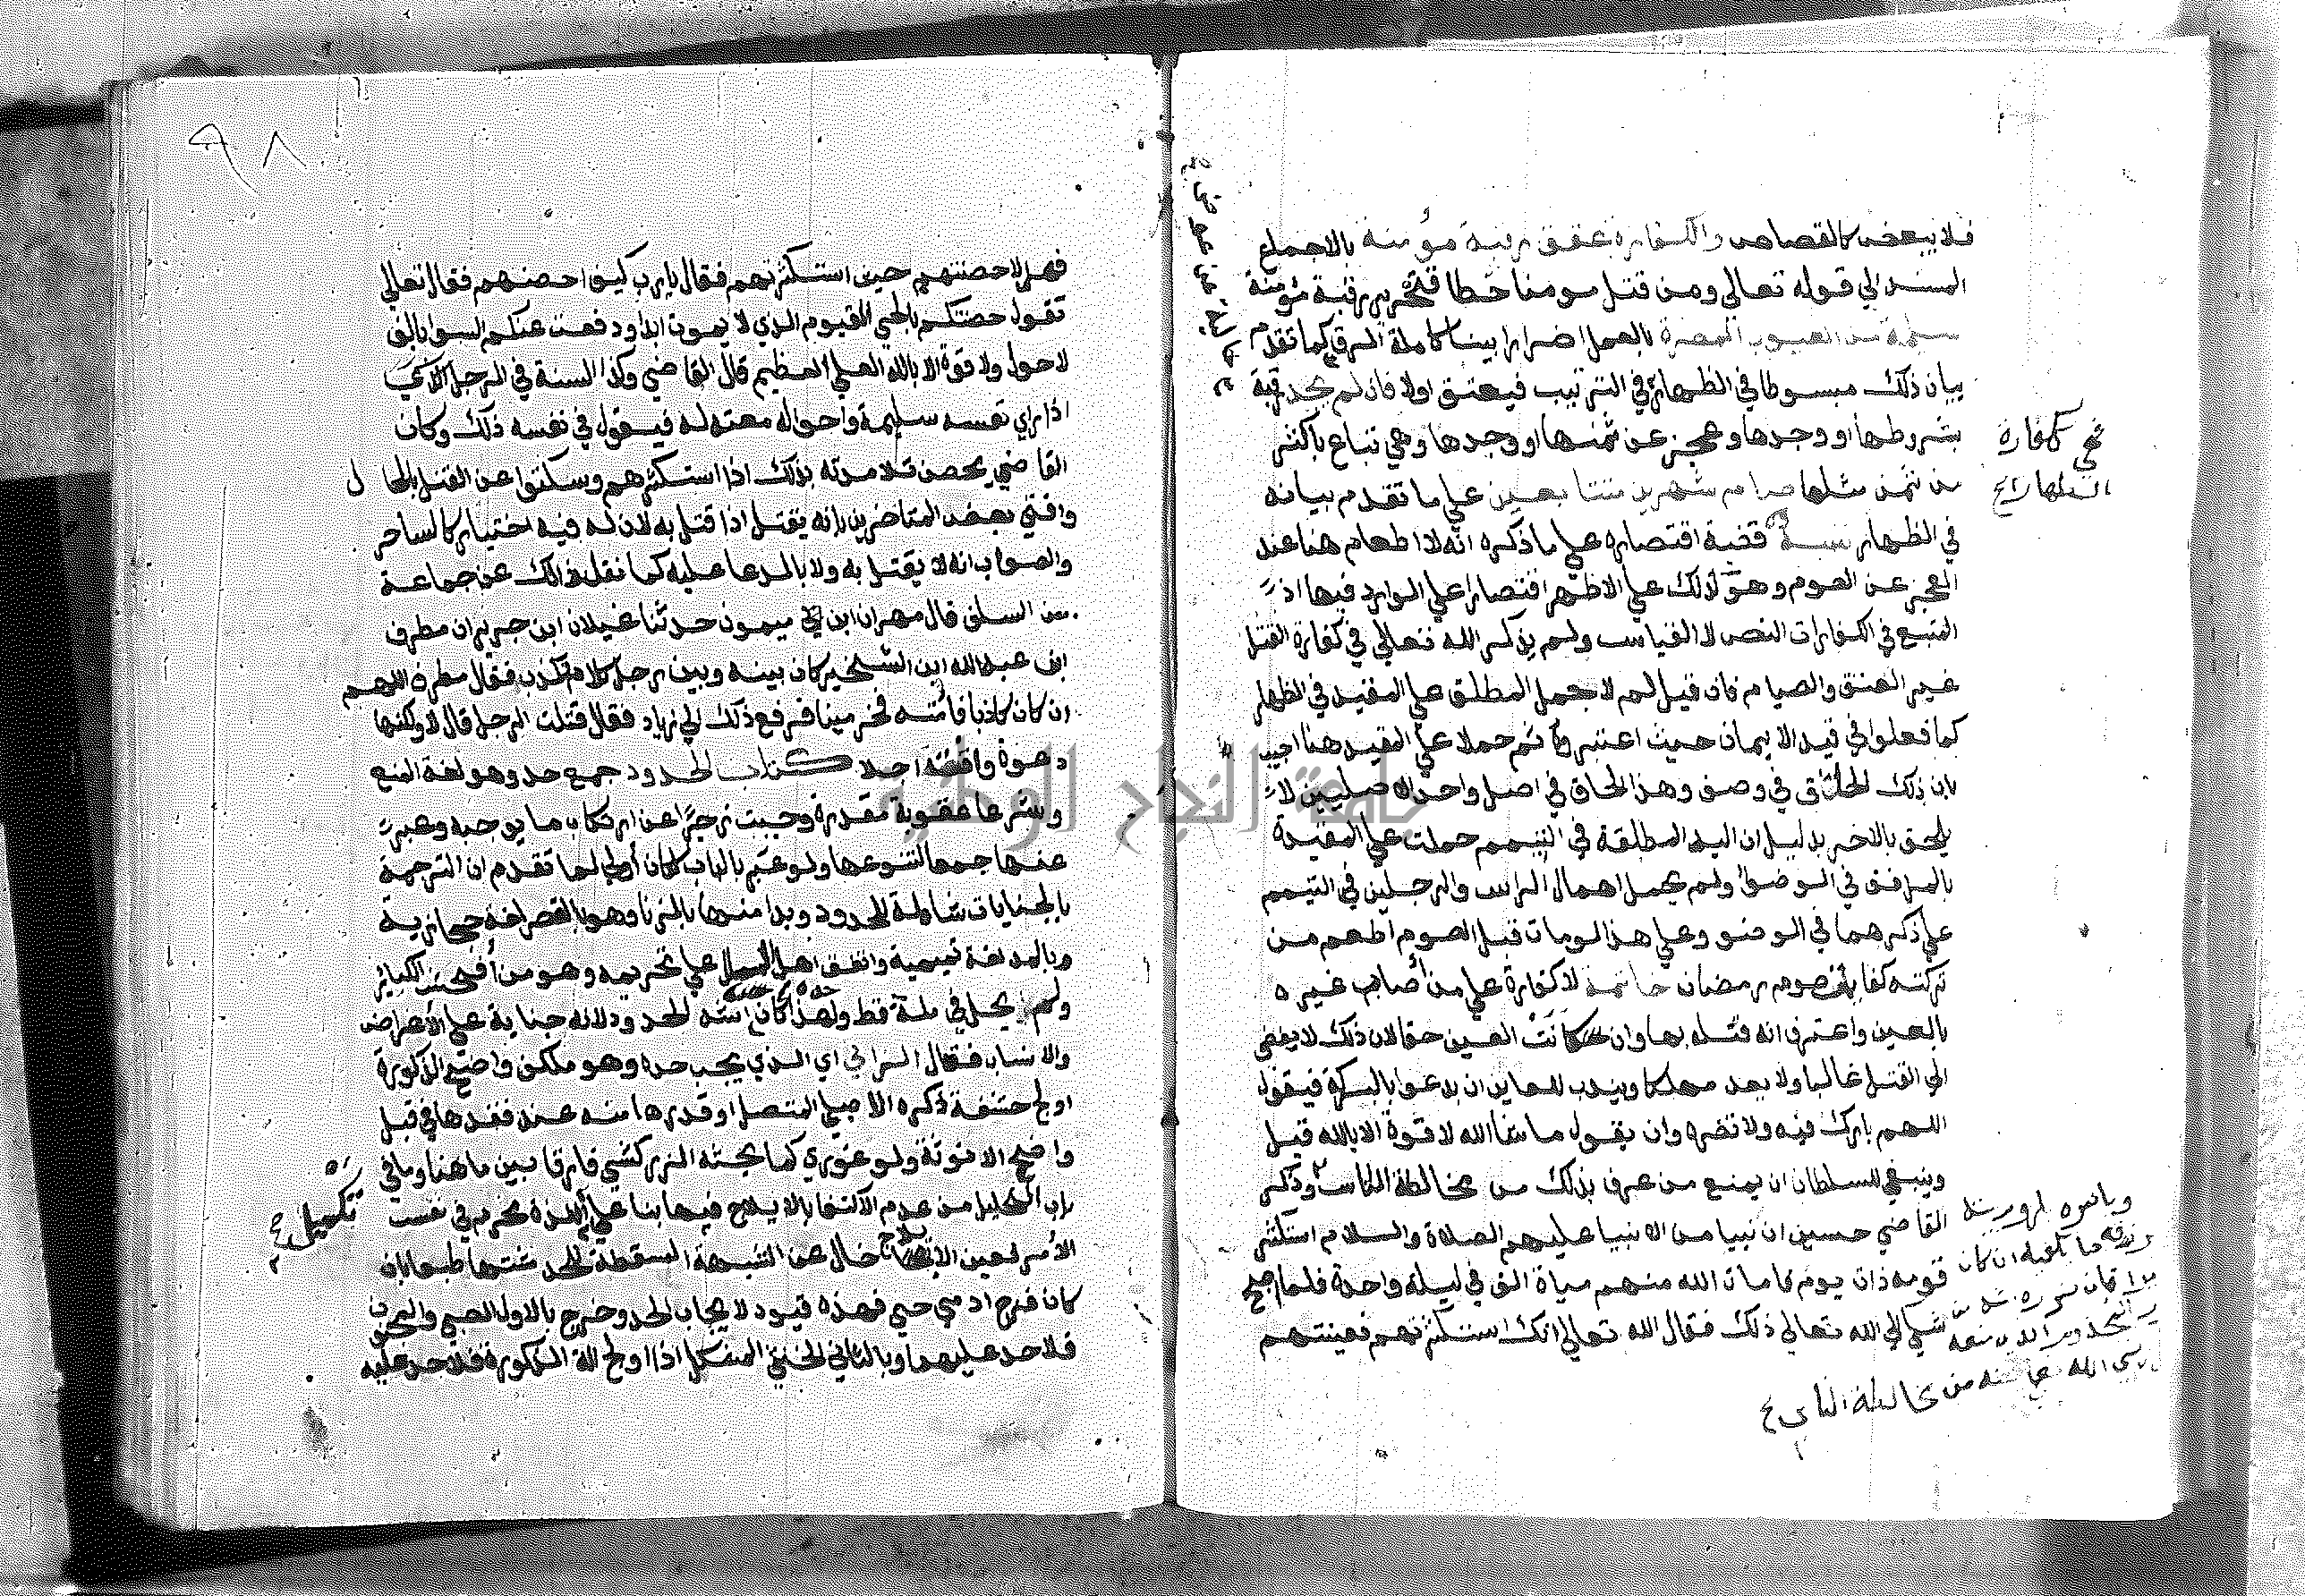 فلا يتبعض كالقصاص والكفارة عتق رقبة مؤمنة بالاجماع
المستند الي قوله تعالي ومن قتل مومنا خطا فتحرير رقبة مؤمنة
سليمة من العيوب المضرة بالعمل اضرارا بينا كاملة الرق كما تقدم
بيان ذلك مبسوطا في الظهار في الترتيب فيعتق اولا فان لم يجد رقبة
بشروطها او وجدها وعجز عن ثمنها او وجدها وهي تباع باكثر
من ثمن مثلها صام شهرين متتابعين علي ما تقدم بيانه
في الظهار قضية اقتصاره علي ما ذكره انه لا اطعام هنا عند
العجز عن الصوم وهو كذلك علي الاظهر اقتصارا علي الوارد فيها اذ
المتبع في الكفارات النص لا القياس ولم يذكر الله تعالي في كفارة القتل
غير العتق والصيام فان قيل لم لا حمل المطلق علي المقيد في الظهار
كما فعلوا في قيد الايمان حيث اعتبروه ثم حملا علي المقيد هنا اجيب
بان ذلك الحاق في وصف وهذا الحاق في اصل واحد الاصليين لا
يلحق بالاخر بدليل ان اليد المطلقة في التيمم حملت علي المقيدة
بالمرافق في الوضوء ولم يحمل اهمال الراس والرجلين في التيمم
علي ذكرهما في الوضو وعلي هذا لو مات قبل الصوم اطعم من
تركته كفايت صوم رمضان خاتمة لا كفارة علي من اصاب غيره
بالعين واعترف انه قتله بها وان كانت العين حقا لان ذلك لا يفضي
الي القتل غالبا ولا يعد مهلكا ويندب للعاين ان يدعوا بالبركة فيقول
اللهم بارك فيه ولا تضره وان يقول ما شا الله لا قوة الا بالله قيل
وينبغي للسلطان ان يمنع من عرف بذلك من مخالطة الناس وذكر
القاضي حسين ان نبيا من الانبيا عليهم الصلاة والسلام استكثر
قومه ذات يوم فامات الله منهم مياة الف في ليلة واحدة فلما اصبح
شكي الي الله تعالي ذلك فقال الله تعالي انك استكثرتهم فعينتهم
في كفارة
الظهار
مخالطة الناس
٩٨
فهلا حصنتهم حين استكثرتهم فقال يا رب كيف احصنهم فقال تعالي
تقول حصنتكم بالحي القيوم الذي لا يموت ابدا ودفعت عنكم السوا بالف
لا حول ولا قوة الا بالله العلي العظيم قال القاضي وكذا السنة في الرجل
اذا راي نفسه سليمة واحواله معتدلة فيقول في نفسه ذلك وكان
القاضي يحصن تلامذته بذلك اذا استكثرهم وسكتوا عن القتل بالحال
وافتي بعض المتاخرين بانه يقتل اذا قتل به لان له فيه اختيار كالساحر
والصواب انه لا يقتل به ولا بالدعا عليه كما نقل ذلك عن جماعة
من السلف قال مهران ابن ميمون حدثنا غيلان ابن جرير ان مطرف
ابن عبد الله ابن الشخير كان بينه وبين رجل كلام فكذب فقال مطرف اللهم
ان كان كاذبا فامته فخر ميتا فرفع ذلك الي زياد فقال قتلت الرجل قال لا ولكنها
دعوة وافقت اجلا كتاب الحدود جمع حد وهو لغة المنع
وشرعا عقوبة مقدرة وجبت زجرا عن ارتكاب ما يوجبه وعبر
عنها جمعا لتنوعها ولو عبر بالباب لكان أولي لما تقدم ان الترجمة
بالجنايات شاملة للحدود وبدا منها بالزنا وهو بالقصر لغة حجازية
وبالمد لغة تميمية واتفق اهل الملل علي تحريمه وهو من أفحش الكبائر
ولم يحل في ملة قط ولهذا كان حده اشد الحدود لانه جناية علي الأعراض
والانساب فقال الزاني اي الذي يجب حده وهو مكلف واضح الذكورة
اولج حشفة ذكره الاصلي المتصل او قدرها منه عند فقدها في قبل
واضح الانوثة ولو غوري كما بحثه الزركشي فارقا بين ما هنا وما في
باب التحليل من عدم الاكتفا بالايلاج فيها بنا علي تكميل اللذة محرم في نفس
الأمر لعين الايلاج خال عن الشبهة المسقطة للحد مشتها طبعا بان
كان فرج ادمي حي فهذه قيود لايجاب الحد وخرج بالاول الصبي والمجنون
فلا حد عليهما وبالثاني الخنثي المشكل اذا اولج الة الذكورة فلا حد عليه
تكميل